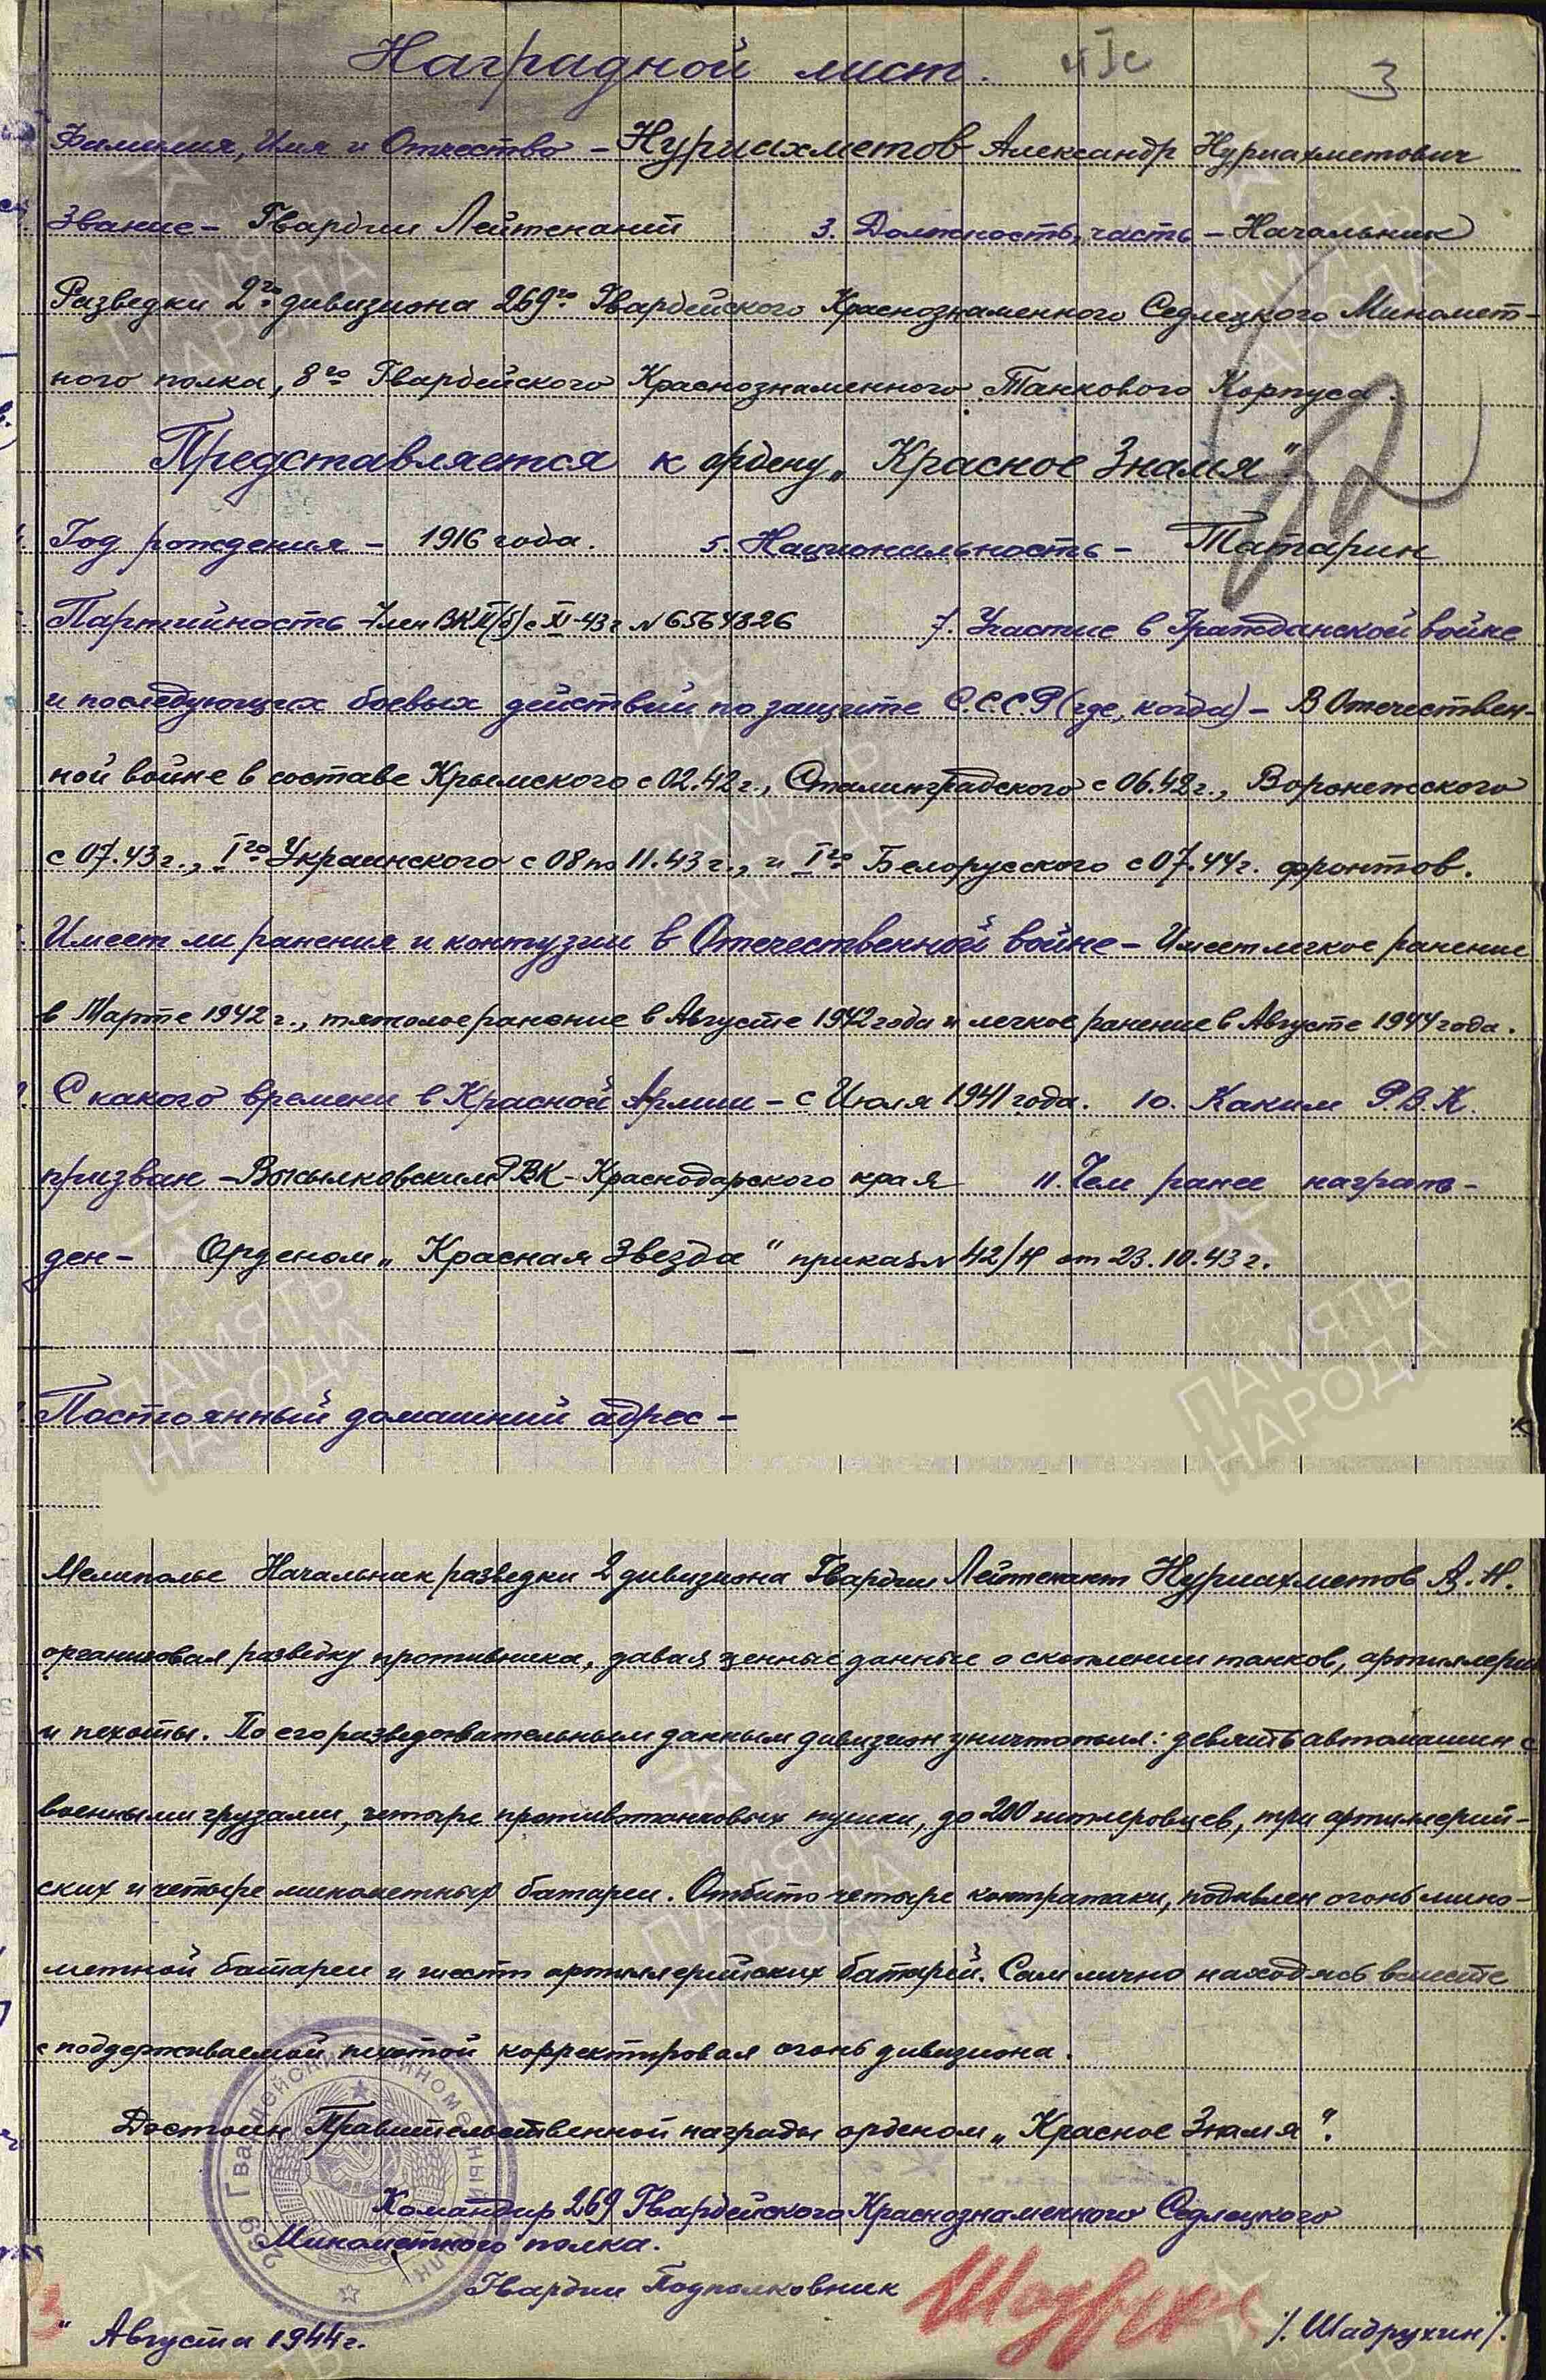 Наградной лист.
3
Фамилия, Имя и Отчество – Нуриахметов Александр Нуриахметович
Звание – Гвардии Лейтенант 3. Должность, часть – Начальник
Разведки 2го дивизиона 269го Гвардейского Краснознаменного Седлецкого Миномет-
ного полка, 8го Гвардейского Краснознаменного Танкового Корпуса.
Представляется к ордену „Красное Знамя"
Год рождения – 1916 года. 5. Национальность – Татарин
Партийность – Член ВКП(б) с XI-43г №6564826 7. Участие в Гражданской войне
и последующих боевых действий по защите С.С.С.Р (где, когда) – В Отечествен-
ной войне в составе Крымского с 02.42г., Сталинградского с 06.42г., Воронежского
с 07.43г., Iго Украинского с 08 по 11.43г., и Iго Белорусского с 07.44г. фронтов.
Имеет ли ранения и контузии в Отечественной войне – Имеет легкое ранение
в Марте 1942г., тяжолое ранение в Августе 1942 года и легкое ранение в Августе 1944 года.
С какого времени в Красной Армии – с Июля 1941 года. 10. Каким Р.В.К.
призван – Высылковским РВК – Краснодарского края 11. Чем ранее награж-
ден – Орденом „Красная Звезда" приказ № 42/Н от 23.10.43г.
Постоянный домашний адрес –
Мелиполье Начальник разведки 2 дивизиона Гвардии Лейтенант Нуриахметов А.Н.
организовал разведку противника, давая ценные данные о скоплении танков, артиллерии
и пехоты. По его разведовательным данным дивизион уничтожил: девять автомашин с
военными грузами, четыре противотанковых пушки, до 200 гитлеровцев, три артиллерий-
ских и четыре минометных батареи. Отбито четыре контратаки, подавлен огонь мино-
метной батареи и шести артиллерийских батарей. Сам лично находясь вместе
с поддерживаемой пехотой корректировал огонь дивизиона.
Достоин Правительственной награды орденом „Красное Знамя".
Командир 269 Гвардейского Краснознаменного Седлецкого
Минометного полка.
Гвардии Подполковник
/Шадрухин/.
" Августа 1944г.
269 Гвардейский Минометный полк
ПАМЯТЬ НАРОДА